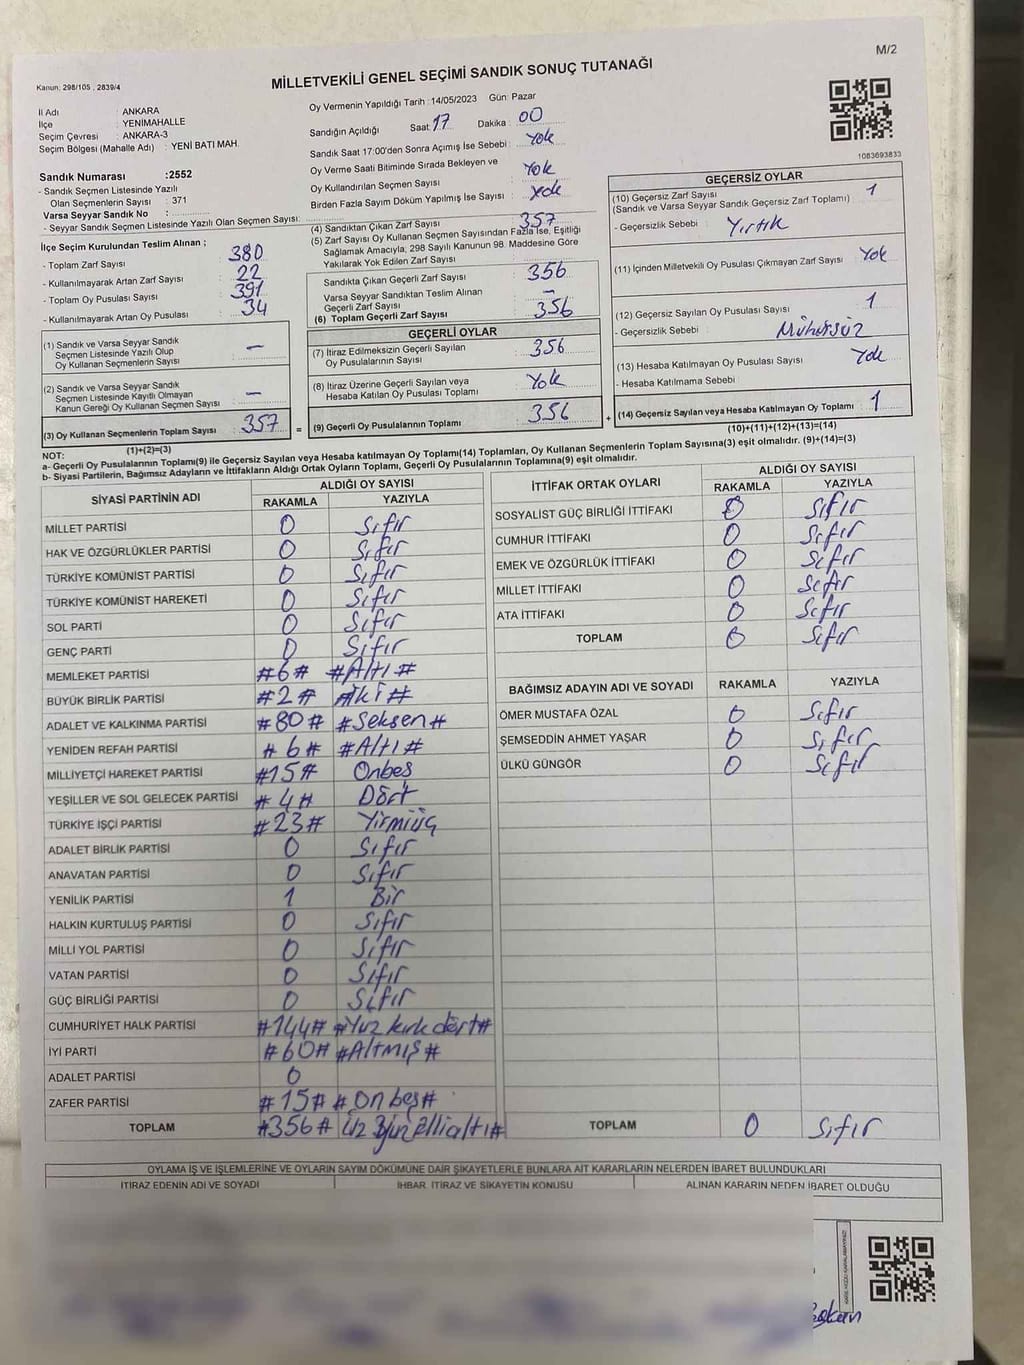 M/2
Kanun: 298/105 , 2839/4
MİLLETVEKİLİ GENEL SEÇİMİ SANDIK SONUÇ TUTANAĞI
İl Adı : ANKARA
İlçe : YENİMAHALLE
Seçim Çevresi : ANKARA-3
Seçim Bölgesi (Mahalle Adı) : YENİ BATI MAH.
Sandık Numarası :2552
- Sandık Seçmen Listesinde Yazılı
Olan Seçmenlerin Sayısı : 371
Varsa Seyyar Sandık No :
- Seyyar Sandık Seçmen Listesinde Yazılı Olan Seçmen Sayısı:
İlçe Seçim Kurulundan Teslim Alınan ;
- Toplam Zarf Sayısı : 380
- Kullanılmayarak Artan Zarf Sayısı : 22
- Toplam Oy Pusulası Sayısı : 391
- Kullanılmayarak Artan Oy Pusulası : 34
(1) Sandık ve Varsa Seyyar Sandık
Seçmen Listesinde Yazılı Olup
Oy Kullanan Seçmenlerin Sayısı : —
(2) Sandık ve Varsa Seyyar Sandık
Seçmen Listesinde Kayıtlı Olmayan
Kanun Gereği Oy Kullanan Seçmen Sayısı : —
(3) Oy Kullanan Seçmenlerin Toplam Sayısı : 357
(1)+(2)=(3)
Oy Vermenin Yapıldığı Tarih :14/05/2023 Gün: Pazar
Sandığın Açıldığı Saat: 17 Dakika : 00
Sandık Saat 17:00'den Sonra Açımış İse Sebebi : Yok
Oy Verme Saati Bitiminde Sırada Bekleyen ve
Oy Kullandırılan Seçmen Sayısı : Yok
Birden Fazla Sayım Döküm Yapılmış İse Sayısı : Yok
(4) Sandıktan Çıkan Zarf Sayısı : 357
(5) Zarf Sayısı Oy Kullanan Seçmen Sayısından Fazla İse, Eşitliği
Sağlamak Amacıyla, 298 Sayılı Kanunun 98. Maddesine Göre
Yakılarak Yok Edilen Zarf Sayısı :
Sandıkta Çıkan Geçerli Zarf Sayısı : 356
Varsa Seyyar Sandıktan Teslim Alınan
Geçerli Zarf Sayısı : —
(6) Toplam Geçerli Zarf Sayısı : 356
GEÇERLİ OYLAR
(7) İtiraz Edilmeksizin Geçerli Sayılan
Oy Pusulalarının Sayısı : 356
(8) İtiraz Üzerine Geçerli Sayılan veya
Hesaba Katılan Oy Pusulası Toplamı : Yok
= (9) Geçerli Oy Pusulalarının Toplamı : 356 +
1083693833
GEÇERSİZ OYLAR
(10) Geçersiz Zarf Sayısı
(Sandık ve Varsa Seyyar Sandık Geçersiz Zarf Toplamı) : 1
- Geçersizlik Sebebi : Yırtık
(11) İçinden Milletvekili Oy Pusulası Çıkmayan Zarf Sayısı : Yok
(12) Geçersiz Sayılan Oy Pusulası Sayısı : 1
- Geçersizlik Sebebi : Mühürsüz
(13) Hesaba Katılmayan Oy Pusulası Sayısı : Yok
- Hesaba Katılmama Sebebi
(14) Geçersiz Sayılan veya Hesaba Katılmayan Oy Toplamı : 1
(10)+(11)+(12)+(13)=(14)
NOT:
a- Geçerli Oy Pusulalarının Toplamı(9) ile Geçersiz Sayılan veya Hesaba katılmayan Oy Toplamı(14) Toplamları, Oy Kullanan Seçmenlerin Toplam Sayısına(3) eşit olmalıdır. (9)+(14)=(3)
b- Siyasi Partilerin, Bağımsız Adayların ve İttifakların Aldığı Ortak Oyların Toplamı, Geçerli Oy Pusulalarının Toplamına(9) eşit olmalıdır.
SİYASİ PARTİNİN ADI ALDIĞI OY SAYISI
RAKAMLA YAZIYLA
MİLLET PARTİSİ 0 Sıfır
HAK VE ÖZGÜRLÜKLER PARTİSİ 0 Sıfır
TÜRKİYE KOMÜNİST PARTİSİ 0 Sıfır
TÜRKİYE KOMÜNİST HAREKETİ 0 Sıfır
SOL PARTİ 0 Sıfır
GENÇ PARTİ 0 Sıfır
MEMLEKET PARTİSİ #6# #Altı#
BÜYÜK BİRLİK PARTİSİ #2# #İki#
ADALET VE KALKINMA PARTİSİ #80# #Seksen#
YENİDEN REFAH PARTİSİ #6# #Altı#
MİLLİYETÇİ HAREKET PARTİSİ #15# Onbeş
YEŞİLLER VE SOL GELECEK PARTİSİ #4# Dört
TÜRKİYE İŞÇİ PARTİSİ #23# Yirmiüç
ADALET BİRLİK PARTİSİ 0 Sıfır
ANAVATAN PARTİSİ 0 Sıfır
YENİLİK PARTİSİ 1 Bir
HALKIN KURTULUŞ PARTİSİ 0 Sıfır
MİLLİ YOL PARTİSİ 0 Sıfır
VATAN PARTİSİ 0 Sıfır
GÜÇ BİRLİĞİ PARTİSİ 0 Sıfır
CUMHURİYET HALK PARTİSİ #144# #Yüz kırk dört#
İYİ PARTİ #60# #Altmış#
ADALET PARTİSİ 0
ZAFER PARTİSİ #15# #Onbeş#
TOPLAM #356#
İTTİFAK ORTAK OYLARI ALDIĞI OY SAYISI
RAKAMLA YAZIYLA
SOSYALİST GÜÇ BİRLİĞİ İTTİFAKI 0 Sıfır
CUMHUR İTTİFAKI 0 Sıfır
EMEK VE ÖZGÜRLÜK İTTİFAKI 0 Sıfır
MİLLET İTTİFAKI 0 Sıfır
ATA İTTİFAKI 0 Sıfır
TOPLAM 0 Sıfır
BAĞIMSIZ ADAYIN ADI VE SOYADI RAKAMLA YAZIYLA
ÖMER MUSTAFA ÖZAL 0 Sıfır
ŞEMSEDDİN AHMET YAŞAR 0 Sıfır
ÜLKÜ GÜNGÖR 0 Sıfır
TOPLAM 0 Sıfır
OYLAMA İŞ VE İŞLEMLERİNE VE OYLARIN SAYIM DÖKÜMÜNE DAİR ŞİKAYETLERLE BUNLARA AİT KARARLARIN NELERDEN İBARET BULUNDUKLARI
İTİRAZ EDENİN ADI VE SOYADI İHBAR, İTİRAZ VE ŞİKAYETİN KONUSU ALINAN KARARIN NEDEN İBARET OLDUĞU